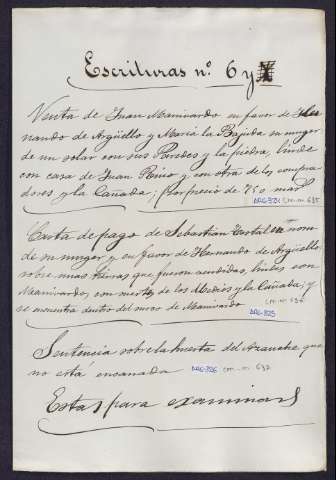 Escrituras nº. 6 y
Venta de Juan Manivardo en favor de Her-
nando de Argüello y María la Bajuda su muger
de un solar con sus Paredes y la piedra, linde
con casa de Juan Rino y con otra de los compra-
dores y la Cañada; por precio de 750 mars
Carta de pago de Sebastián en nom.
de su muger y en favor de Hernando de Argüello
sobre unas tierras que fueron vendidas, lindes con
Manivardo, con y la Cañada; y
se encuentra dentro del muro de Manivardo
Sentencia sobre la huerta del Arauche que
no está ensanada
Estas para examinar